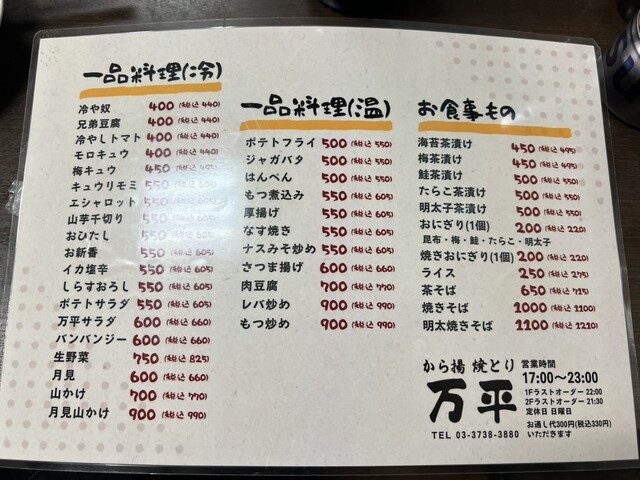 一品料理(冷)
冷や奴 400 (税込 440)
兄弟豆腐 400 (税込 440)
冷やしトマト 400 (税込 440)
モロキュウ 400 (税込 440)
梅キュウ 450 (税込 495)
キュウリモミ 550 (税込 605)
エシャロット 550 (税込 605)
山芋千切り 550 (税込 605)
おひたし 550 (税込 605)
お新香 550 (税込 605)
イカ塩辛 550 (税込 605)
しらすおろし 550 (税込 605)
ポテトサラダ 550 (税込 605)
万平サラダ 600 (税込 660)
バンバンジー 600 (税込 660)
生野菜 750 (税込 825)
月見 600 (税込 660)
山かけ 700 (税込 770)
月見山かけ 900 (税込 990)
一品料理(温)
ポテトフライ 500 (税込 550)
ジャガバタ 500 (税込 550)
はんぺん 500 (税込 550)
もつ煮込み 550 (税込 605)
厚揚げ 550 (税込 605)
なす焼き 550 (税込 605)
ナスみそ炒め 550 (税込 605)
さつま揚げ 600 (税込 660)
肉豆腐 700 (税込 770)
レバ炒め 900 (税込 990)
もつ炒め 900 (税込 990)
お食事もの
海苔茶漬け 450 (税込 495)
梅茶漬け 450 (税込 495)
鮭茶漬け 500 (税込 550)
たらこ茶漬け 500 (税込 550)
明太子茶漬け 500 (税込 550)
おにぎり(1個) 200 (税込 220)
昆布・梅・鮭・たらこ・明太子
焼きおにぎり(1個) 200 (税込 220)
ライス 250 (税込 275)
茶そば 650 (税込 715)
焼きそば 1000 (税込 1100)
明太焼きそば 1100 (税込 1210)
から揚 焼とり
万平
TEL 03-3738-3880
営業時間
17:00〜23:00
1Fラストオーダー 22:00
2Fラストオーダー 21:30
定休日 日曜日
お通し代300円(税込330円)
いただきます